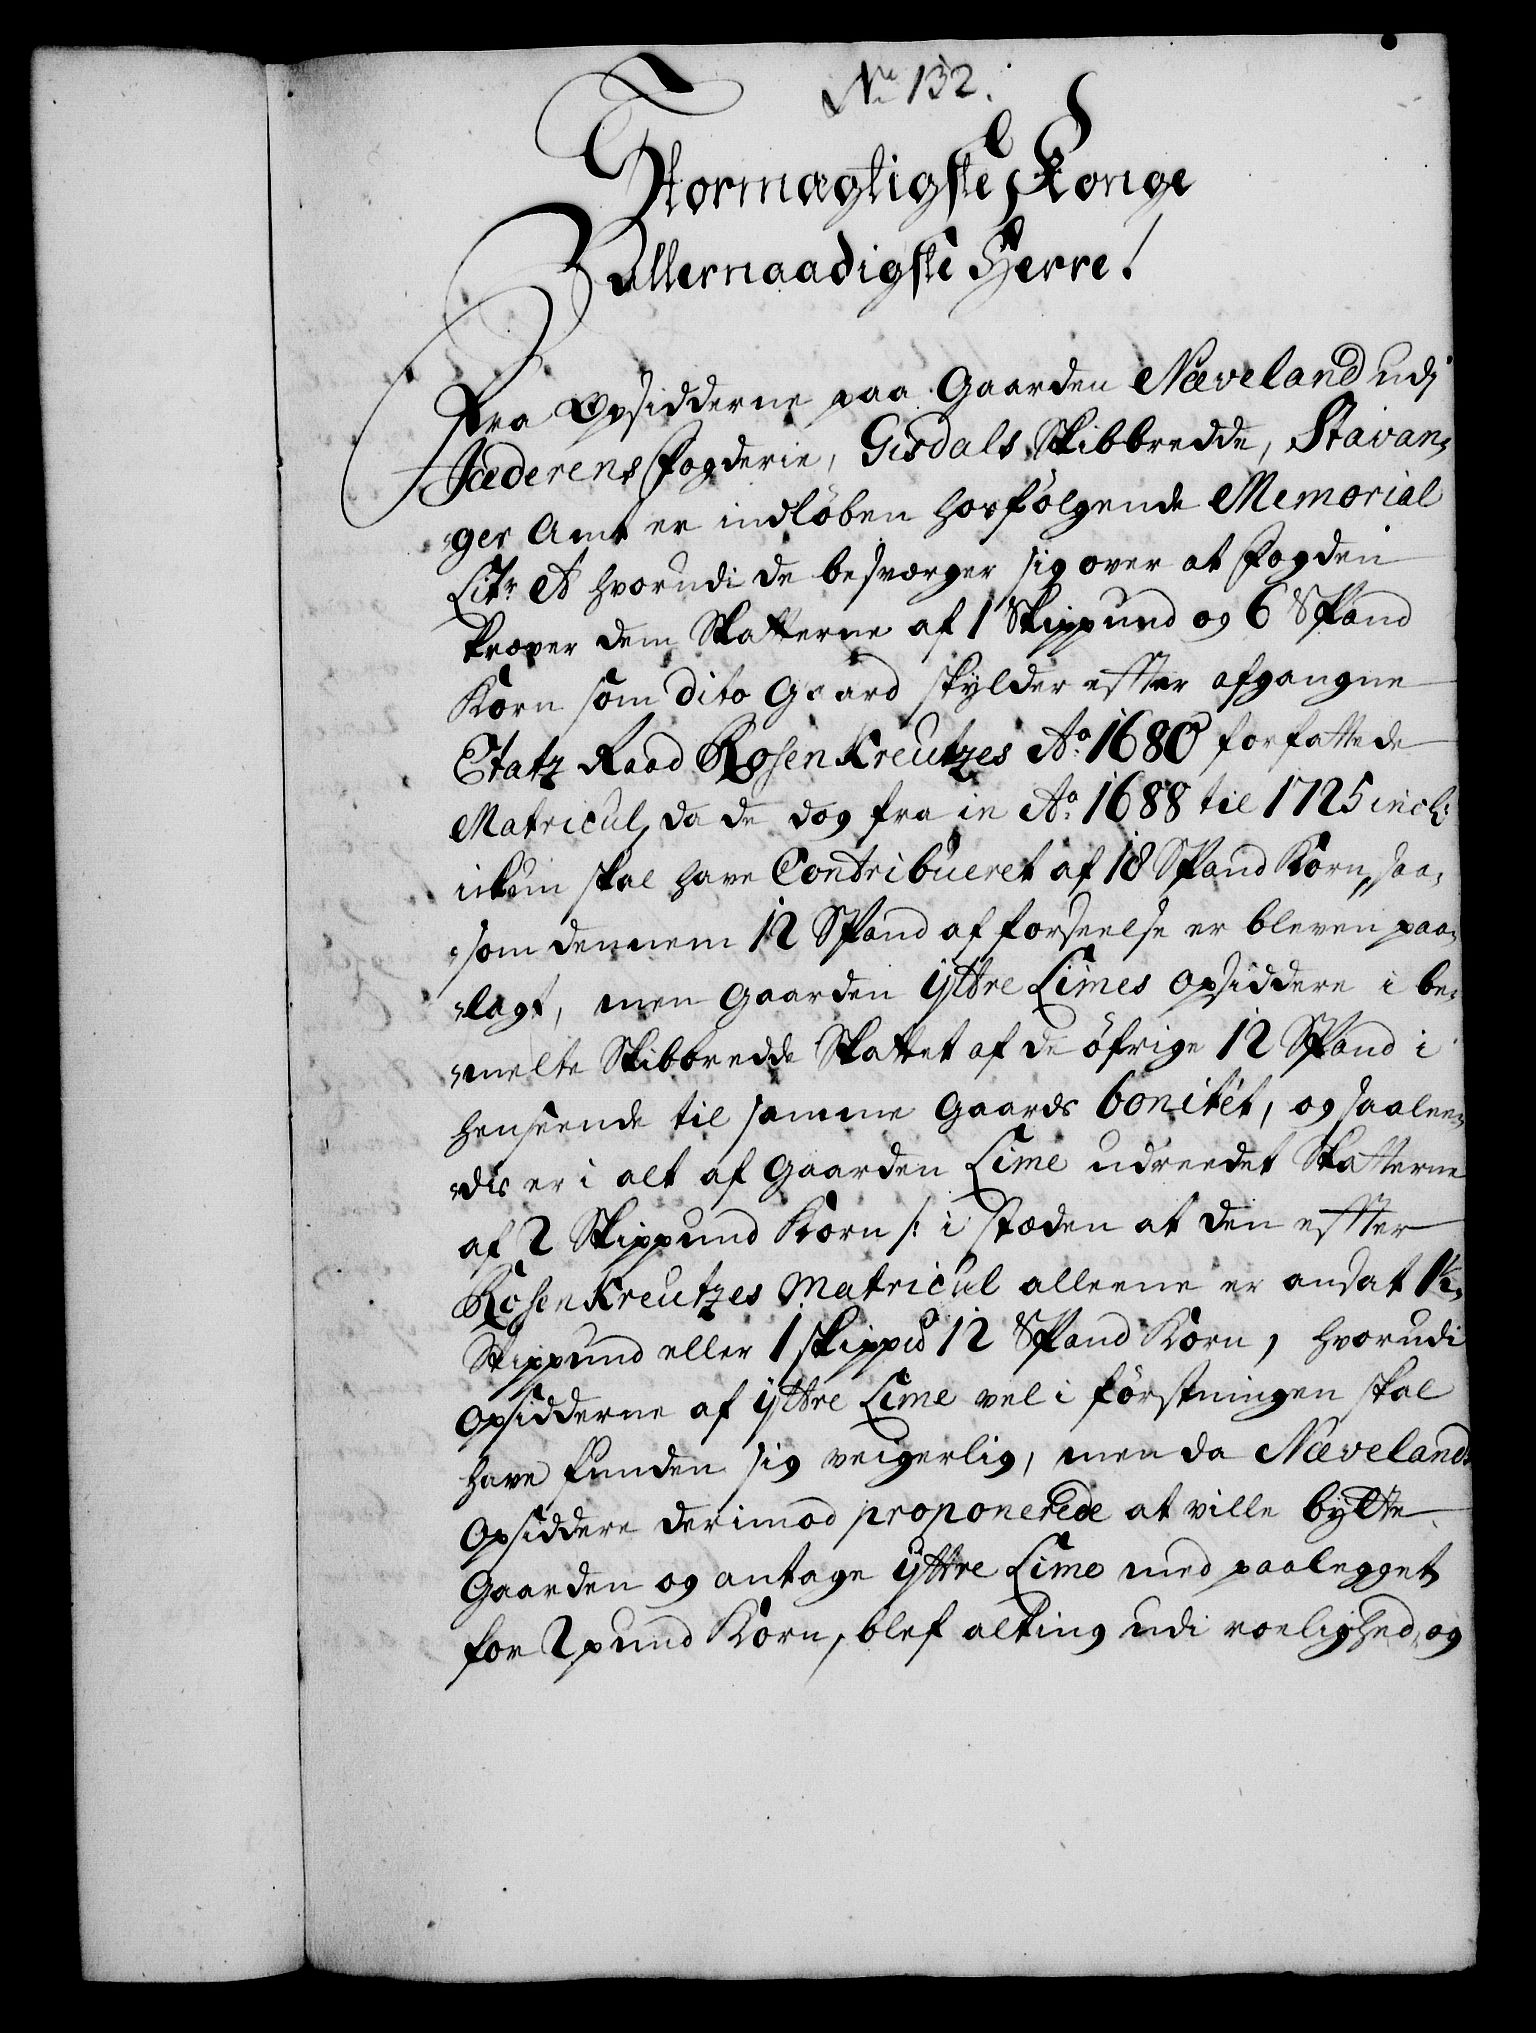 No 132.
Stormægtigste Konge
Allernaadigste Herre!
Fra Opsidderne paa Gaarden Næveland udj
Jæderens Fogderie, Giesdals Skibbredde, Stavan-
ger Amt er indløben hosfølgende Memorial
Litr A hvorudi de besværger sig over at Fogden
kræver dem Skatterne af 1 Skippund og 6 Spand
Korn som dito Gaard skylder effter afgangne
Etatz Raad Rosenkreutzes Ao 1680 forfattede
Matricul, da de dog fra in Ao 1688 til 1725 incl:
ickun skal have Contribueret af 18 Spand Korn, saa-
som dennem 12 Spand af forseelse er bleven paa-
lagt, men Gaarden ÿttre Limes opsiddere i be-
melte Skibbredde Skattet af de öfrige 12 Spand i
henseende til samme Gaards bonitét, og saalee-
dis er i alt af Gaarden Lime udreedet Skatterne
af 2 Skippund Korn /: i stæden at den effter
Rosenkreutzes Matricul alleene er ansat 1½
Skippund eller 1 skippd 12 Spand Korn, hvorudi
Opsidderne af ÿttre Lime vel i förstningen skal
have funden sig veigerlig, men da Nævelands
Opsiddere derimod proponerede at ville bÿtte
Gaarden og antage ÿttre Lime med paalegget
for 2 pund Korn, blef alting udi roelighed, og